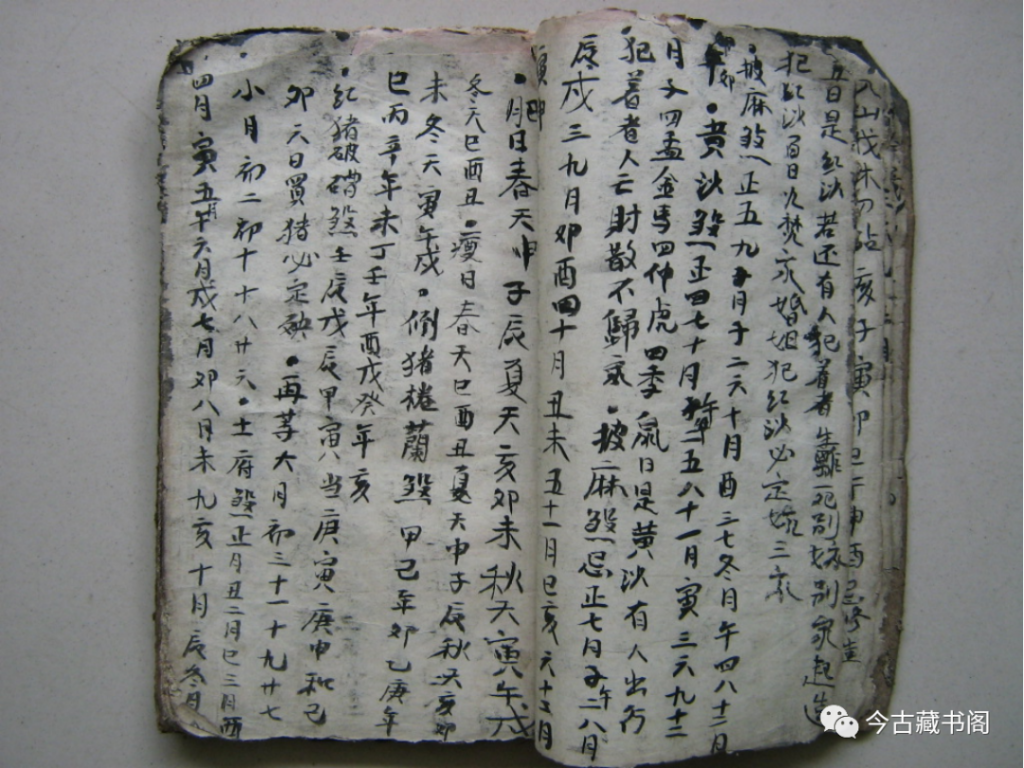 入山伐木 亥子寅卯巳午申酉忌修造
五日是红沙若还有人犯着者生離死别嫁别家起造
犯红沙百日火焚家婚姐犯红沙必定嫁三家
·披麻煞正五九月子二六十月酉三七冬月午四八十二月
卯·黄沙煞正四七十月二五八十一月寅三六九十二
月子四孟金馬四仲虎四季鼠日是黄沙有人出行
犯着者人亡財散不歸家·披麻煞忌正七月子午二八月
辰戌三九月卯酉四十月丑未五十一月巳亥六十二月
寅卯
·肥日春天申子辰夏天亥卯未秋天寅午戌
冬天巳酉丑·瘦日春天巳酉丑夏天申子辰秋天亥卯
未冬天寅午戌·倒猪棬蘭煞甲己年卯乙庚年
巳丙辛年未丁壬年酉戊癸年亥
·红猪破碎煞壬辰戊辰甲寅八当庚寅庚申和己
卯六日買猪必定殃·再等大月初三十一十九廿七
小月初二初十十八廿六·土府煞正月丑二月巳三月酉
四月寅五月午六月戌七月卯八月未九亥十月辰冬月
今古藏书阁